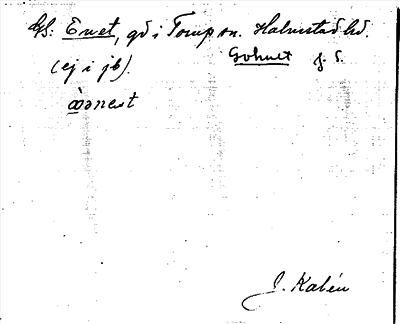 Gs: Enet, gd i Torup sn. Halmstad hd.
(ej i jb). Gohuet f. S.
æ̀ənest
J. Kalén